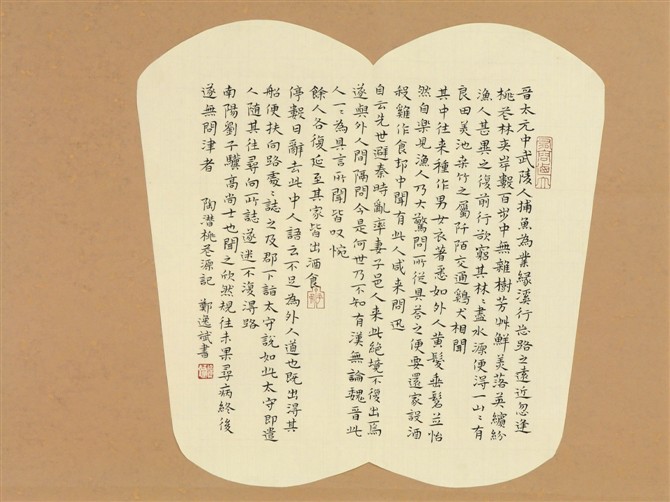 晉太元中武陵人捕魚為業緣溪行忘路之遠近忽逢
桃花林夾岸數百步中無雜樹芳艸鮮美落英繽紛
漁人甚異之復前行欲窮其林〻盡水源便得一山〻有
良田美池桑竹之屬阡陌交通鷄犬相聞
其中往來種作男女衣著悉如外人黃髮垂髫並怡
然自樂見漁人乃大驚問所從具答之便要還家設酒
殺雞作食邨中聞有此人咸來問迅
自云先世避秦時亂率妻子邑人來此絕境不復出焉
遂與外人間隔問今是何世乃不知有漢無論魏晉此
人一〻為具言所聞皆叹惋
餘人各復延至其家皆出酒食
停數日辭去此中人語云不足為外人道也既出得其
船便扶向路處〻誌之及郡下詣太守說如此太守即遣
人隨其往尋向所誌遂迷不復得路
南陽劉子驥高尚士也聞之欣然規往未果尋病終後
遂無問津者 陶潛桃花源記 鄭逸斌書